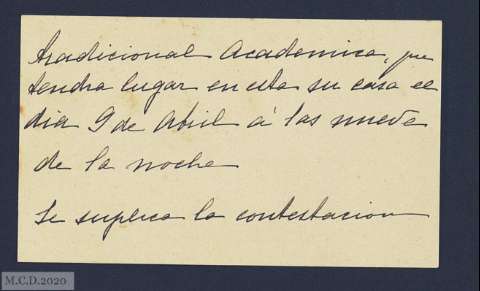 tradicional Academica, que
tendra lugar en esta su casa el
dia 9 de Abril á las nueve
de la noche
Se suplica la contestacion
M.C.D.2020